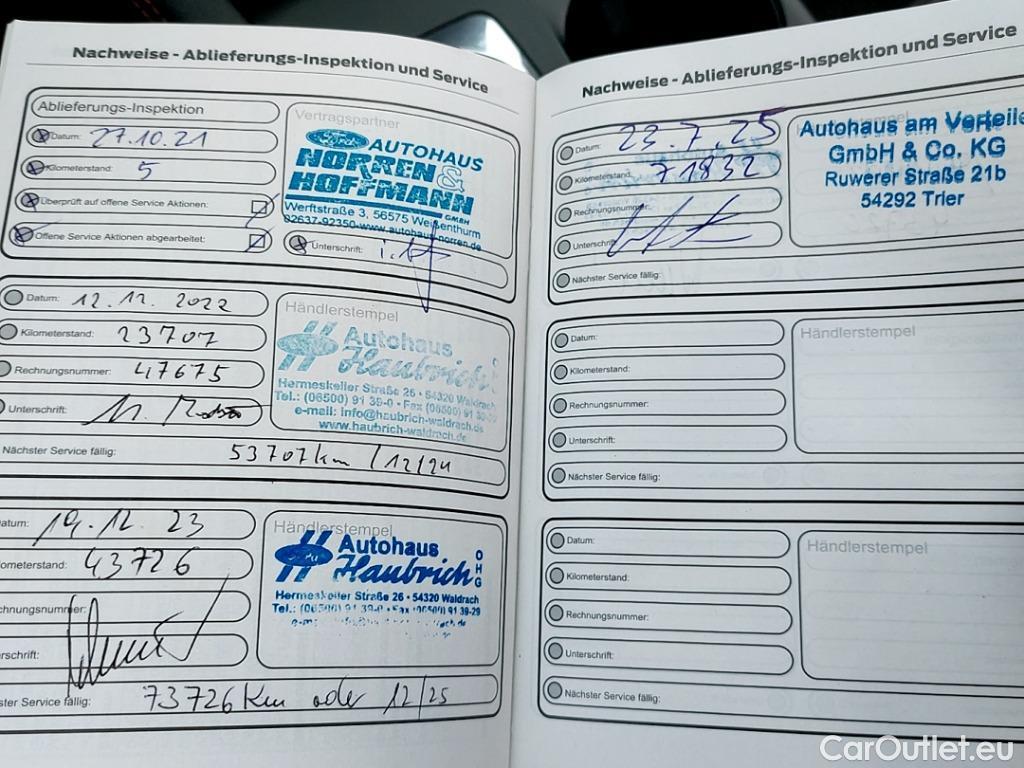 Nachweise - Ablieferungs-Inspektion und Service
Ablieferungs-Inspektion
Datum: 27.10.21
Kilometerstand: 5
Überprüft auf offene Service Aktionen:
Offene Service Aktionen abgearbeitet:
Vertragspartner
Ford AUTOHAUS
NORREN &
HOFFMANN
GMBH
Werftstraße 3, 56575 Weißenthurm
02637-92350-www.autohaus-norren.de
Unterschrift:
Datum: 12.12.2022
Kilometerstand: 23707
Rechnungsnummer: 47675
Unterschrift:
Händlerstempel
Autohaus
Haubrich
Hermeskeiler Straße 26 · 54320 Waldrach
Tel.: (06500) 91 39-0 · Fax (06500) 91 39-29
e-mail: info@haubrich-waldrach.de
www.haubrich-waldrach.de
Nächster Service fällig: 53707km /12/24
atum: 19.12.23
ometerstand: 43726
chnungsnummer:
erschrift:
Händlerstempel
Autohaus
Haubrich
OHG
Hermeskeiler Straße 26 · 54320 Waldrach
Tel.: (06500) 91 39-0 · Fax (06500) 91 39-29
ster Service fällig: 73726Km oder 12/25
Nachweise - Ablieferungs-Inspektion und Service
Datum: 23.7.25
Kilometerstand: 71832
Rechnungsnummer:
Unterschrift:
Nächster Service fällig:
Händlerstempel
Autohaus am Verteile
GmbH & Co. KG
Ruwerer Straße 21b
54292 Trier
Datum:
Kilometerstand:
Rechnungsnummer:
Unterschrift:
Nächster Service fällig:
Händlerstempel
Datum:
Kilometerstand:
Rechnungsnummer:
Unterschrift:
Nächster Service fällig:
Händlerstempel
CarOutlet.eu